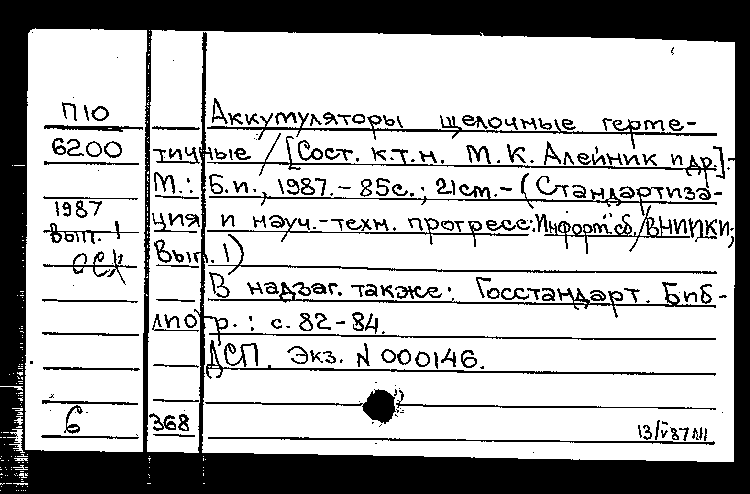 П10
6200
1987
Вып. 1
ОСК
Аккумуляторы щелочные герме-
тичные / [Сост. к.т.н. М.К. Алейник и др.].-
М.: Б.и., 1987.- 85с.; 21см.- (Стандартиза-
ция и науч.-техн. прогресс: Информ. сб. / ВНИИКИ;
Вып. 1)
В надзаг. также: Госстандарт. Биб-
лиогр.: с. 82-84.
ДСП. Экз. N 000146.
6
368
13/V87